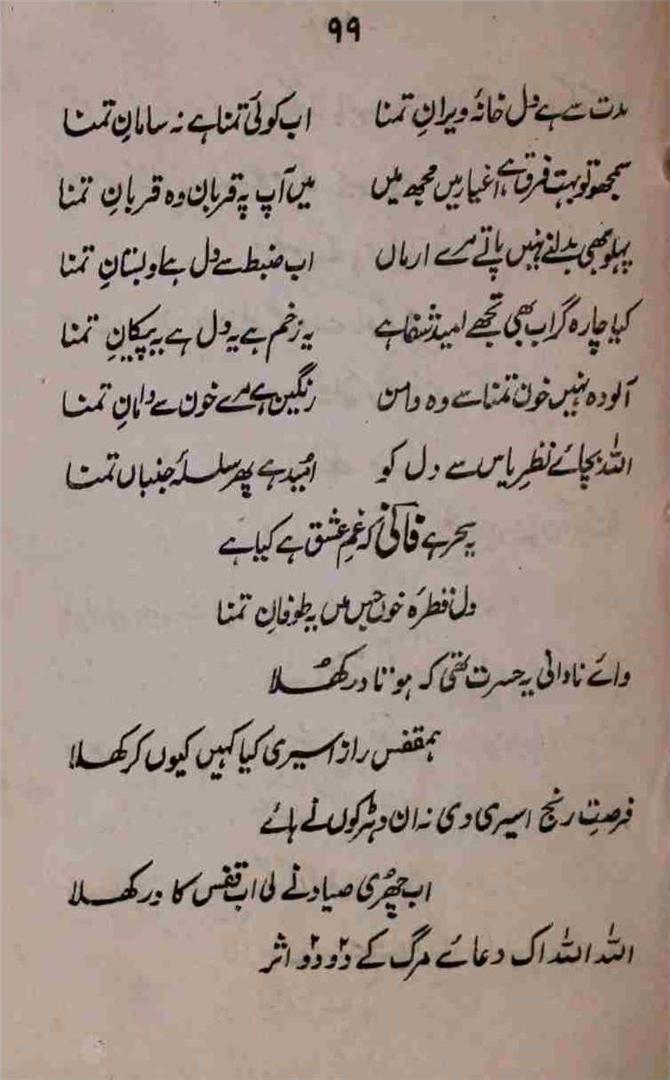 ۹۹
مدت سے ہے دل خانۂ ویرانِ تمنا اب کوئی تمنا ہے نہ سامانِ تمنا
سمجھو تو بہت فرق ہے اغیار میں مجھ میں میں آپ پہ قربان وہ قربانِ تمنا
پہلو بھی بدلنے نہیں پاتے مرے ارماں اب ضبط سے دل ہے دبستانِ تمنا
کیا چارہ گر اب بھی تجھے امیدِ شفا ہے یہ زخم ہے یہ دل ہے یہ پیکانِ تمنا
آلودہ نہیں خونِ تمنا سے وہ دامن رنگین ہے مرے خون سے دامانِ تمنا
اللہ بچائے نظرِ یاس سے دل کو امید ہے پھر سلسلۂ جنباں تمنا
یہ سحر ہے فانیؔ کہ غمِ عشق ہے کیا ہے
دل قطرہ خوں جس میں یہ طوفانِ تمنا
وائے نادانی یہ حسرت تھی کہ ہوتا در کھُلا
ہمقفس رازِ اسیری کیا کہیں کیوں کر کھلا
فرصتِ رنج اسیری دی نہ ان دھڑکوں نے ہائے
اب چھُری صیاد نے لی اب قفس کا در کھلا
اللہ اللہ اک دعائے مرگ کے دو دو اثر